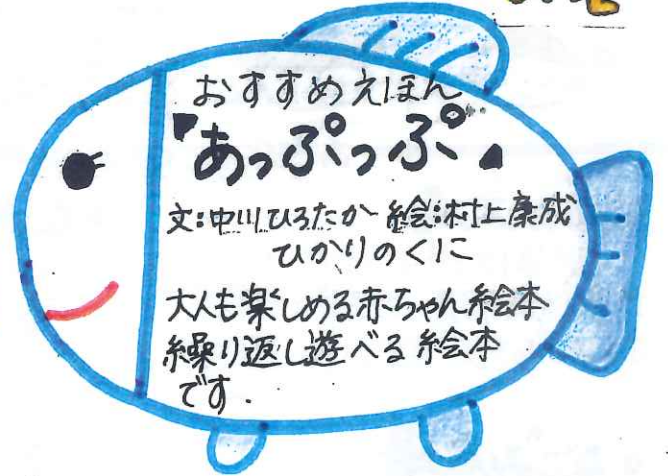 おすすめえほん
「あっぷっぷ」
文:中川ひろたか 絵:村上康成
ひかりのくに
大人も楽しめる赤ちゃん絵本
繰り返し遊べる絵本
です.